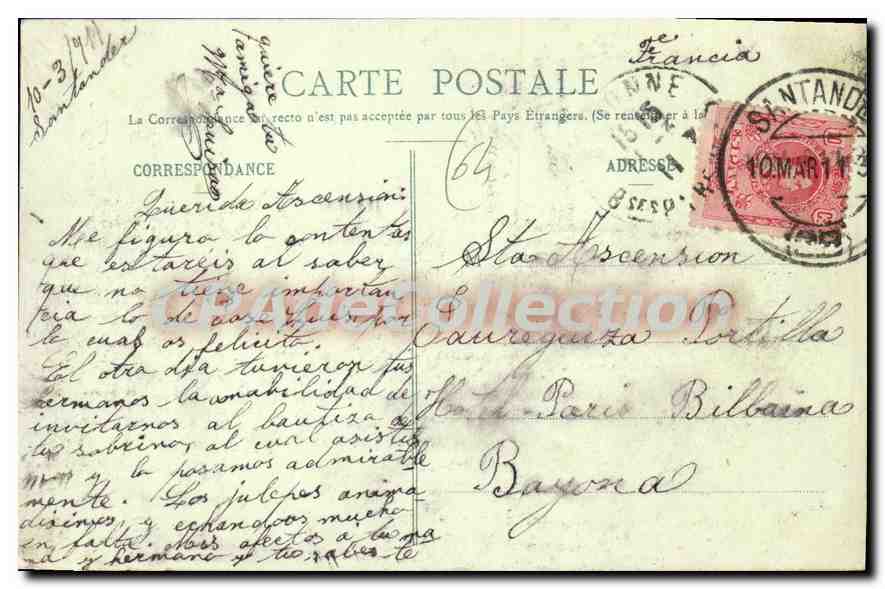 10-3/911
Santander
quiere
tu amiga
CARTE POSTALE
La Correspondance au recto n'est pas acceptée par tous les Pays Étrangers. (Se renseigner à la
CORRESPONDANCE
ADRESSE
64
Francia
SANTANDE
10 MAR 11
Querida Ascension:
Me figuro lo contentas
que estareis al saber
que no tiene importan
cia lo de José Luis por
lo cual os felicito.
El otro dia tuvieron tus
hermanos la amabilidad de
invitarnos al bautizo de
tu sobrino, al cual asistis
mos y lo pasamos admirable
mente. Los julepes anima
disimos y echandoos mucho
en falta. Mis afectos a tu ma
ma y hermano y tu sabes te
Sta Ascension
Laureguiza Portilla
Hotel Paris Bilbaina
Bayona
CPArteCollection